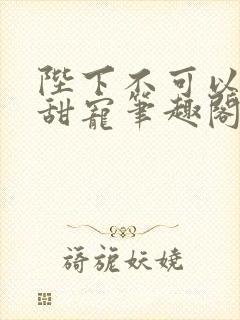 陛下不可以
甜寵筆趣閣
旖旎妖嬈